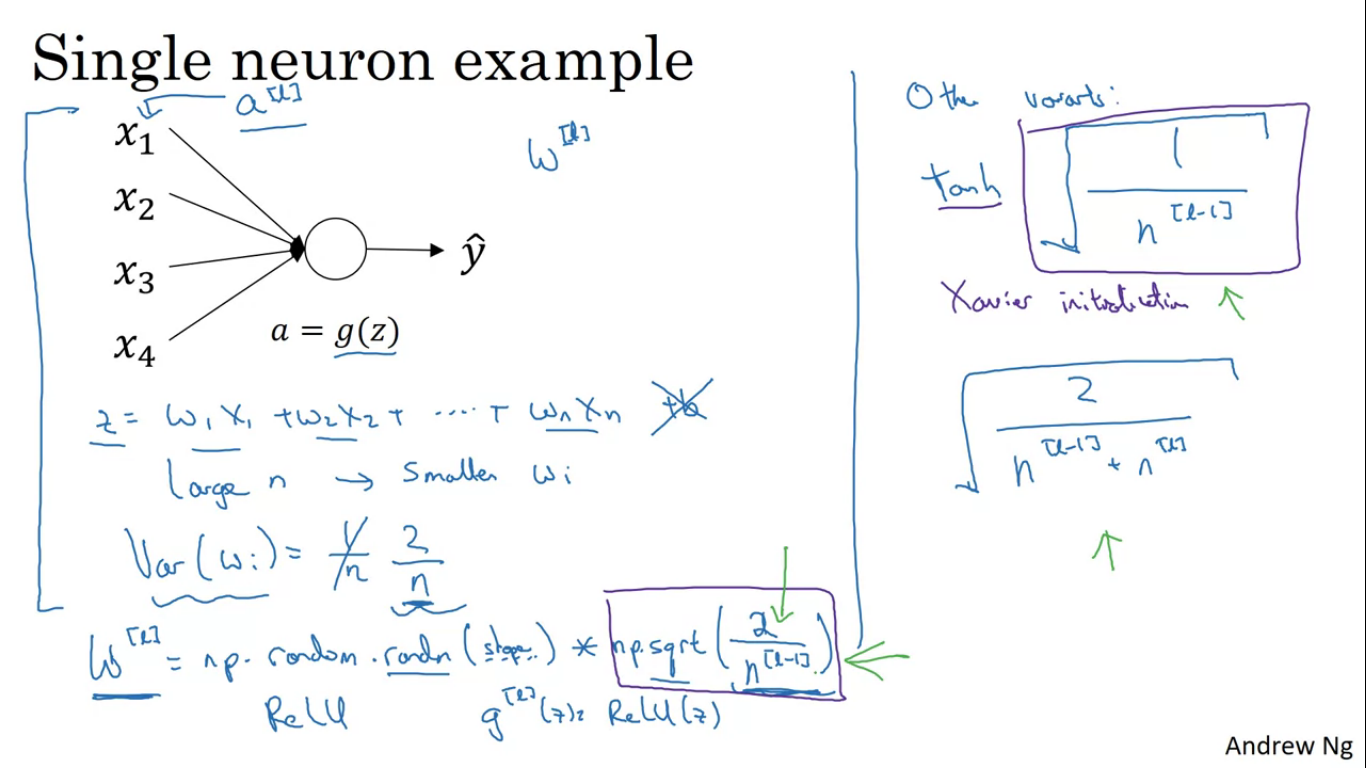 Single neuron example
a^[l]
x₁
x₂
x₃
x₄
ŷ
a = g(z)
w^[l]
z = w₁x₁ + w₂x₂ + ..... + wₙxₙ +b
Large n → Smaller wᵢ
Var(wᵢ) = 1/n 2/n
W^[l] = np.random.randn(shape..) * np.sqrt(2/n^[l-1])
ReLU g^[l](z) = ReLU(z)
Other variants:
tanh √(1/n^[l-1])
Xavier initialization
√(2/(n^[l-1] + n^[l]))
Andrew Ng